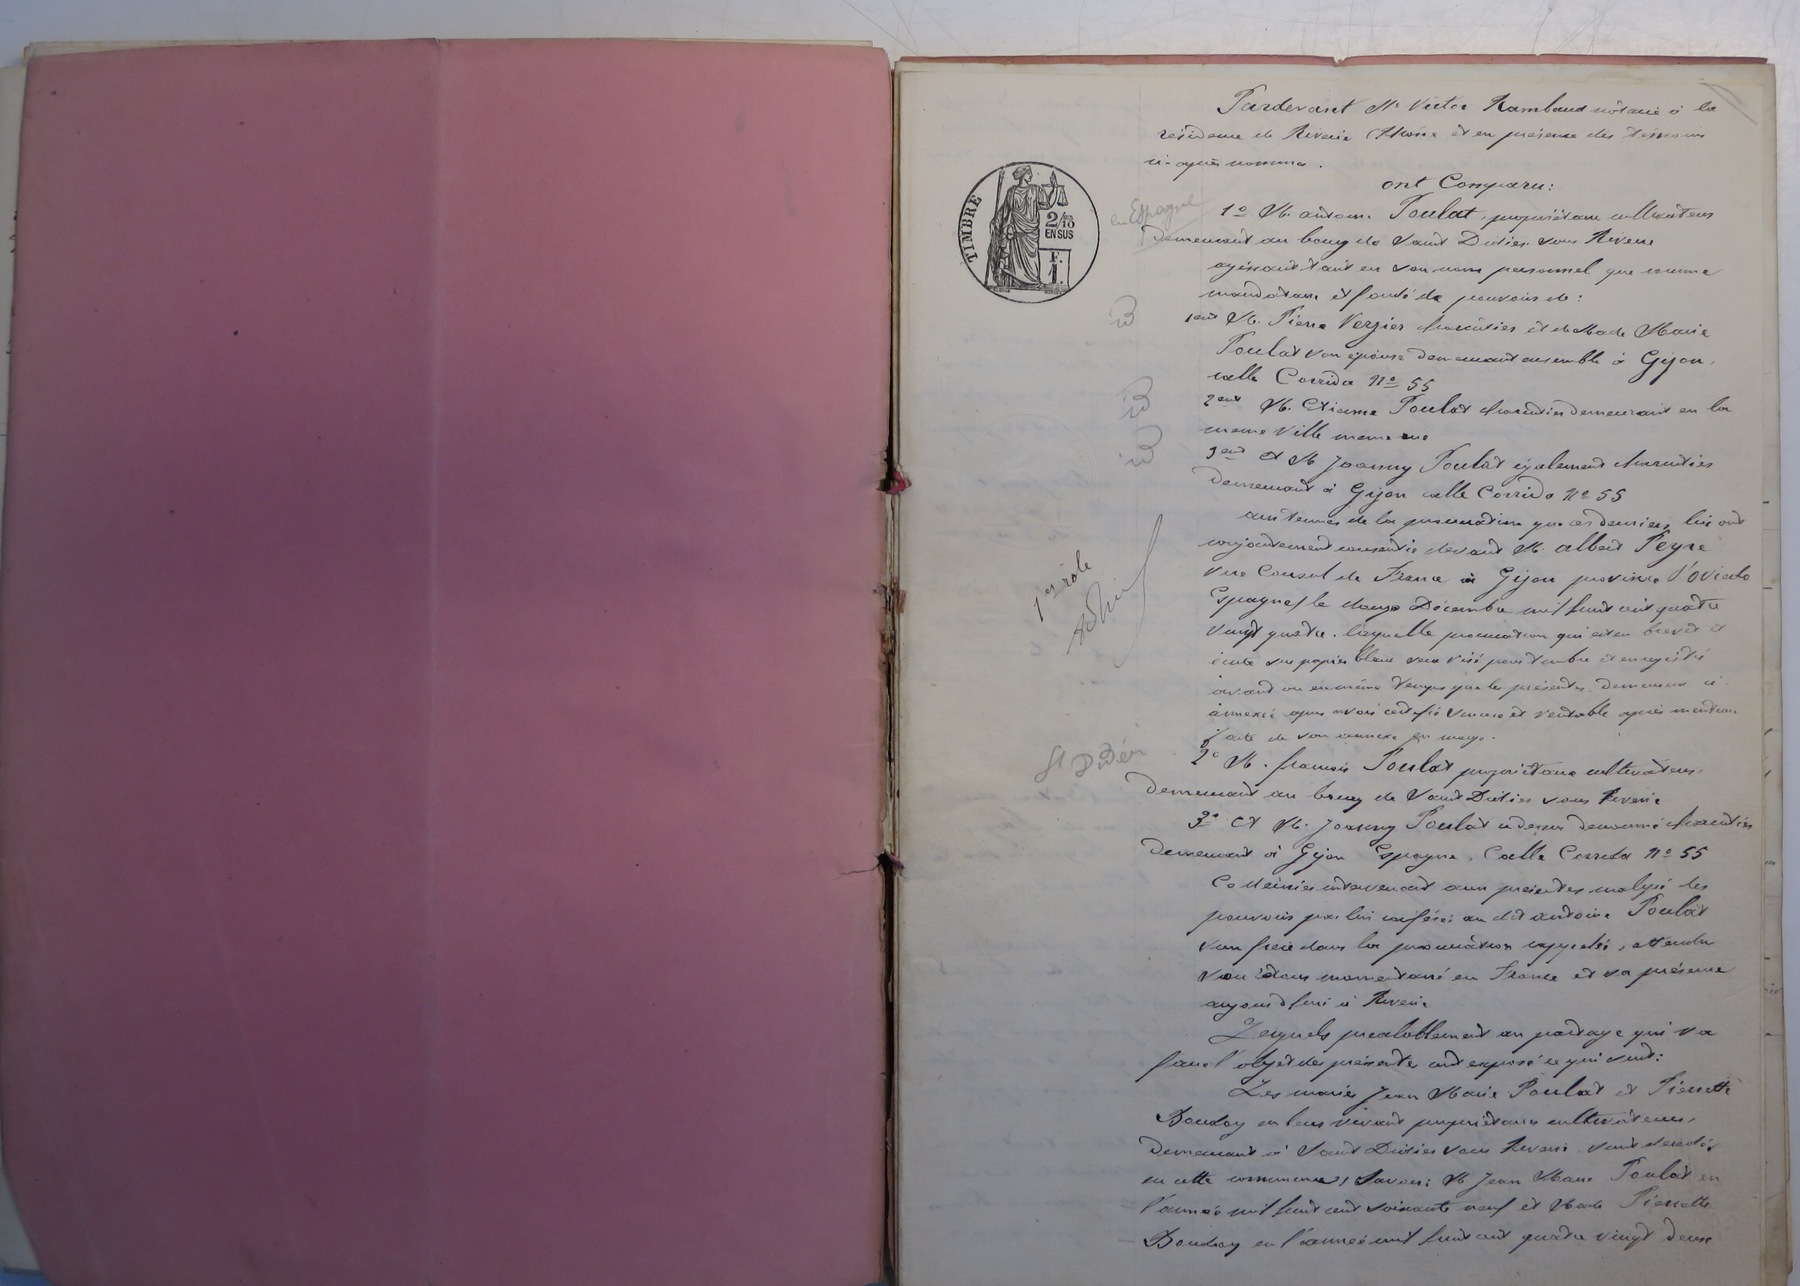 Pardevant Me Victor Rambaud notaire à la
résidence de Riverie (Rhône et en présence des témoins
ci-après nommés.
ont Comparu:
TIMBRE
2/10 EN SUS
F. 1.
en Espagne
1o M. antoine Poulat, propriétaire cultivateur
demeurant au bourg de Saint Didier sous Riverie
agissant tant en son nom personnel que comme
mandataire et fondé de pouvoirs de:
1ent M. Pierre Verzier charcutier et de Made Marie
Poulat son épouse demeurant ensemble à Gijon,
calle Corrida No 55
2ent M. Etienne Poulat charcutier demeurant en la
meme ville meme rue
3ent et M Joanny Poulat également charcutier
demeurant à Gijon calle Corrida No 55
aux termes de la procuration que ces derniers lui ont
conjointement consentie devant M. albert Peyre
vice Consul de France à Gijon province d'Oviedo
Espagne le douze Décembre mil huit cent quatre
vingt quatre. laquelle procuration qui est en brevet et
écrite sur papier blanc sera visé pour timbre et enregistré
avant ou en même temps que les présentes demeure ci
annexée après avoir certifié sincère et véritable après mention
faite de son annexe en marge.
1er rôle
St Didier
2o M. francois Poulat propriétaire cultivateur,
demeurant au bourg de Saint Didier sous Riverie
3o et M. Joanny Poulat ci dessus dénommé charcutier
demeurant à Gijon Espagne. Calle Corrida No 55
Ce dernier intervenant aux présentes malgré les
pouvoirs par lui conférés au dit antoine Poulat
son frère dans la procuration rappelée, attendu
son séjour momentané en France et sa présence
aujourd'hui à Riverie
Lesquels préalablement au partage qui va
faire l'objet des présentes ont exposé ce qui suit:
Les mariés Jean Marie Poulat et Pierrette
Bouchoy en leur vivant propriétaires cultivateurs,
demeurant à Saint Didier sous Riverie sont décédés
en cette commune, Savoir: M Jean Marie Poulat en
l'année mil huit cent soixante neuf et Made Pierrette
en l'année mil huit cent quatre vingt deux